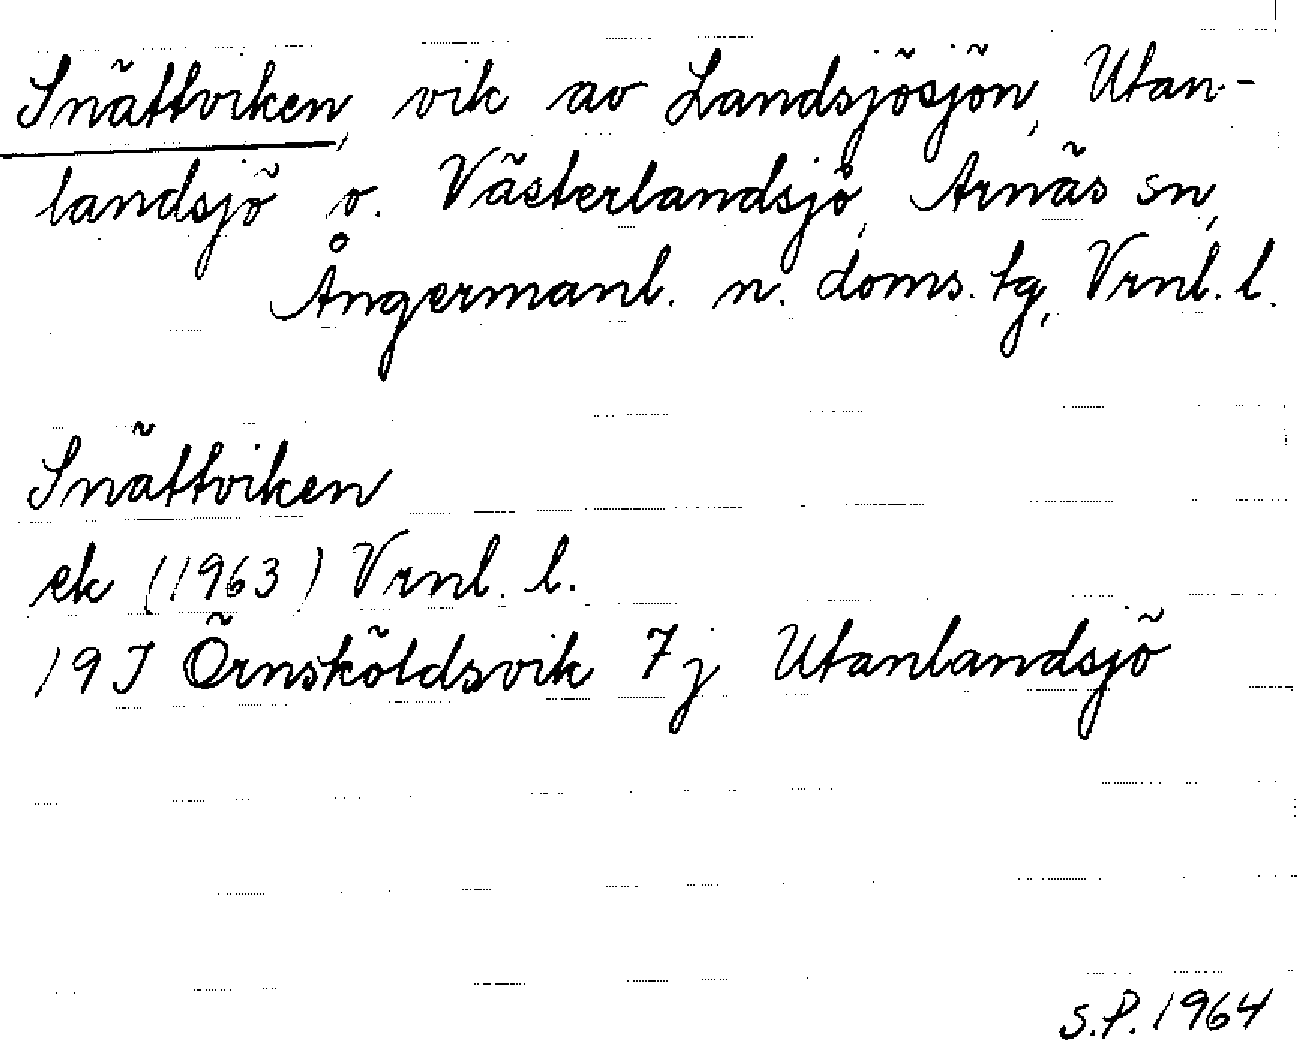 Snättviken, vik av Landsjösjön, Utan-
landsjö o. Västerlandsjö, Arnäs sn,
Ångermanl. n. doms. tg, Vrnl. l.
Snättviken
ek (1963) Vrnl. l.
19J Örnsköldsvik 7j Utanlandsjö
S.P. 1964